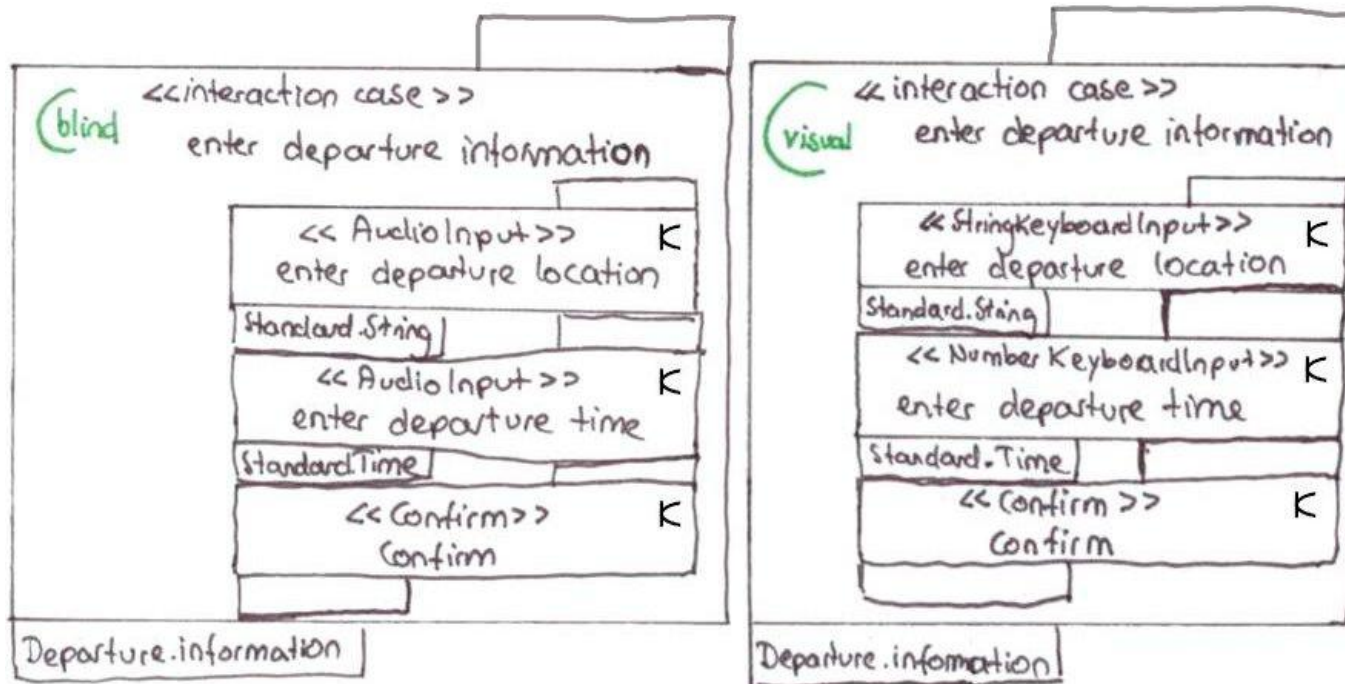 <<interaction case>>
blind
enter departure information
<<AudioInput>> K
enter departure location
Standard.String
<<AudioInput>> K
enter departure time
Standard.Time
<<Confirm>> K
Confirm
Departure.information
<<interaction case>>
visual
enter departure information
<<StringKeyboardInput>> K
enter departure location
Standard.String
<<NumberKeyboardInput>> K
enter departure time
Standard.Time
<<Confirm>> K
Confirm
Departure.information